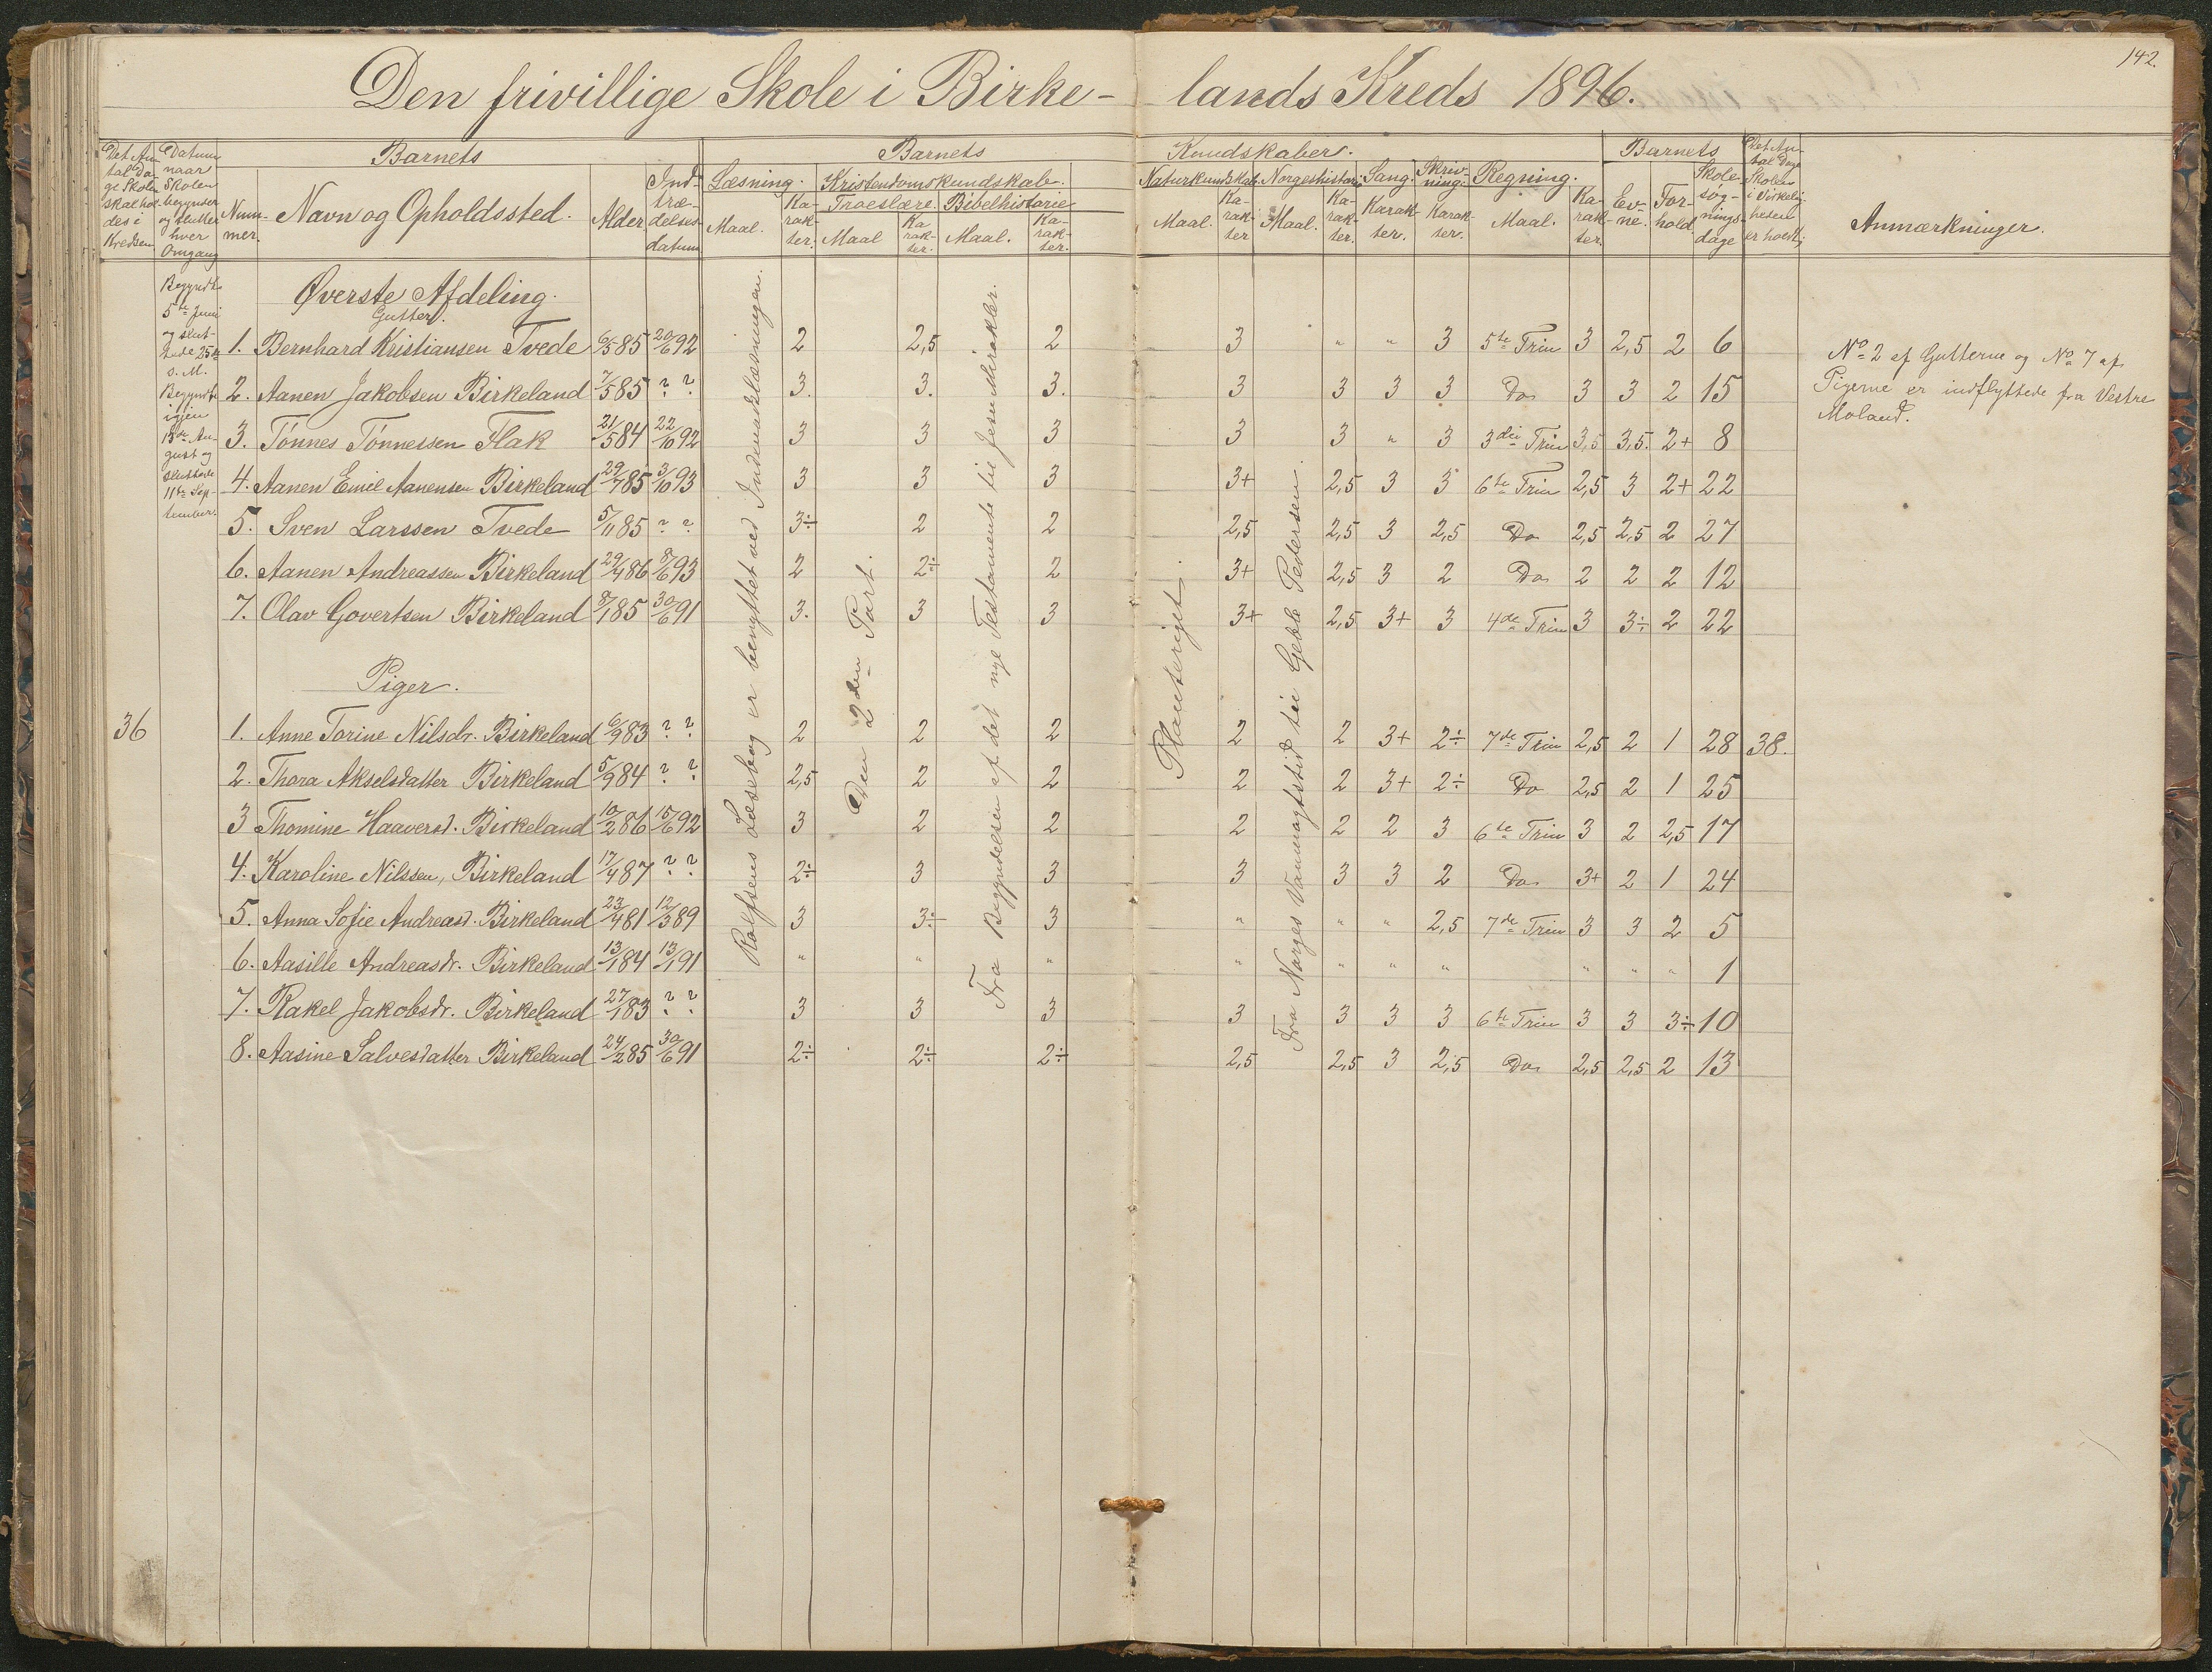 142.
Den frivillige Skole i Birke- lands Kreds 1896.
Det An- tal Da- ge Skolen skal hol- des i Kredsen
Datum naar Skolen begynder og slutter hver Omgang
Barnets
Num- mer. Navn og Opholdssted. Alder Ind- træ- delses- datum
Barnets Kundskaber.
Læsning. Kristendomskundskab. Naturkundskab. Norgeshistorie Sang. Skriv- ning. Regning.
Troeslære. Bibelhistorie
Maal. Ka- rak- ter. Maal Ka- rak- ter. Maal. Ka- rak- ter. Maal. Ka- rak- ter Maal. Ka- rak- ter. Karak- ter. Karak- ter. Maal. Ka- rak- ter.
Barnets
Ev- ne. For- hold. Skole- søg- nings- dage
Det An- tal Dage Skolen i Virkelig- heden er holdt
Anmærkninger.
Begyndte
5te Juni
og slut-
tede 25de
s. M.
Begyndte
igjen
13de Au-
gust og
sluttede
11te Sep-
tember.
Øverste Afdeling.
Gutter.
1. Bernhard Kristiansen Tvede 6/5 85 20/6 92 2 2,5 2 3 " " 3 5te Trin 3 2,5 2 6
2. Aanen Jakobsen Birkeland 7/5 85 ? ? 3. 3. 3. 3 3 3 3 Do 3 3 2 15
3. Tønnes Tønnessen Flak 21/5 84 22/10 92 3 3 3 3 3 " 3 3die Trin 3,5 3,5. 2+ 8
4. Aanen Emil Aanensen Birkeland 29/7 85 3/10 93 3 3 3 3+ 2,5 3 3 6te Trin 2,5 3 2+ 22
5. Sven Larssen Tvede 5/11 85 ? ? 3÷ 2 2 2,5 2,5 3 2,5 Do 2,5 2,5 2 27
6. Aanen Andreassen Birkeland 29/4 86 8/6 93 2 2÷ 2 3+ 2,5 3 2 Do 2 2 2 12
7. Olav Govertsen Birkeland 8/1 85 30/6 91 3. 3 3 3+ 2,5 3+ 3 4de Trin 3 3÷ 2 22
Piger.
36 1. Anne Torine Nilsdr. Birkeland 6/9 83 ? ? 2 2 2 2 2 3+ 2÷ 7de Trin 2,5 2 1 28 38.
2. Thora Akselsdatter Birkeland 5/9 84 ? ? 2,5 2 2 2 2 3+ 2÷ Do 2,5 2 1 25
3 Thomine Haaversd. Birkeland 10/2 86 15/6 92 3 2 2 2 2 2 3 6te Trin 3 2 2,5 17
4. Karoline Nilssen, Birkeland 17/4 87 ? ? 2÷ 3 3 3 3 3 2 Do 3+ 2 1 24
5. Anna Sofie Andreasd. Birkeland 23/4 81 12/3 89 3 3÷ 3 " " " 2,5 7de Trin 3 3 2 5
6. Aasille Andreasdr. Birkeland 13/1 84 13/1 91 " " " " " " " " " " 1
7. Rakel Jakobsdr. Birkeland 27/1 83 ? ? 3 3 3 3 3 3 3 6te Trin 3 3 3÷ 10
8. Aasine Salvesdatter Birkeland 24/2 85 30/6 91 2÷ 2÷ 2÷ 2,5 2,5 3 2,5 Do 2,5 2,5 2 13
Rolfsens Læsebog er benyttet ved Indenadslæsningen.
Den 2den Part.
Fra Begyndelsen af det nye Testamente til Jesu Mirakler.
Planteriget.
Fra Norges Vanmagtstid til Geble Pedersen.
No 2 af Gutterne og No 7 af
Pigerne er indflyttede fra Vestre
Moland.